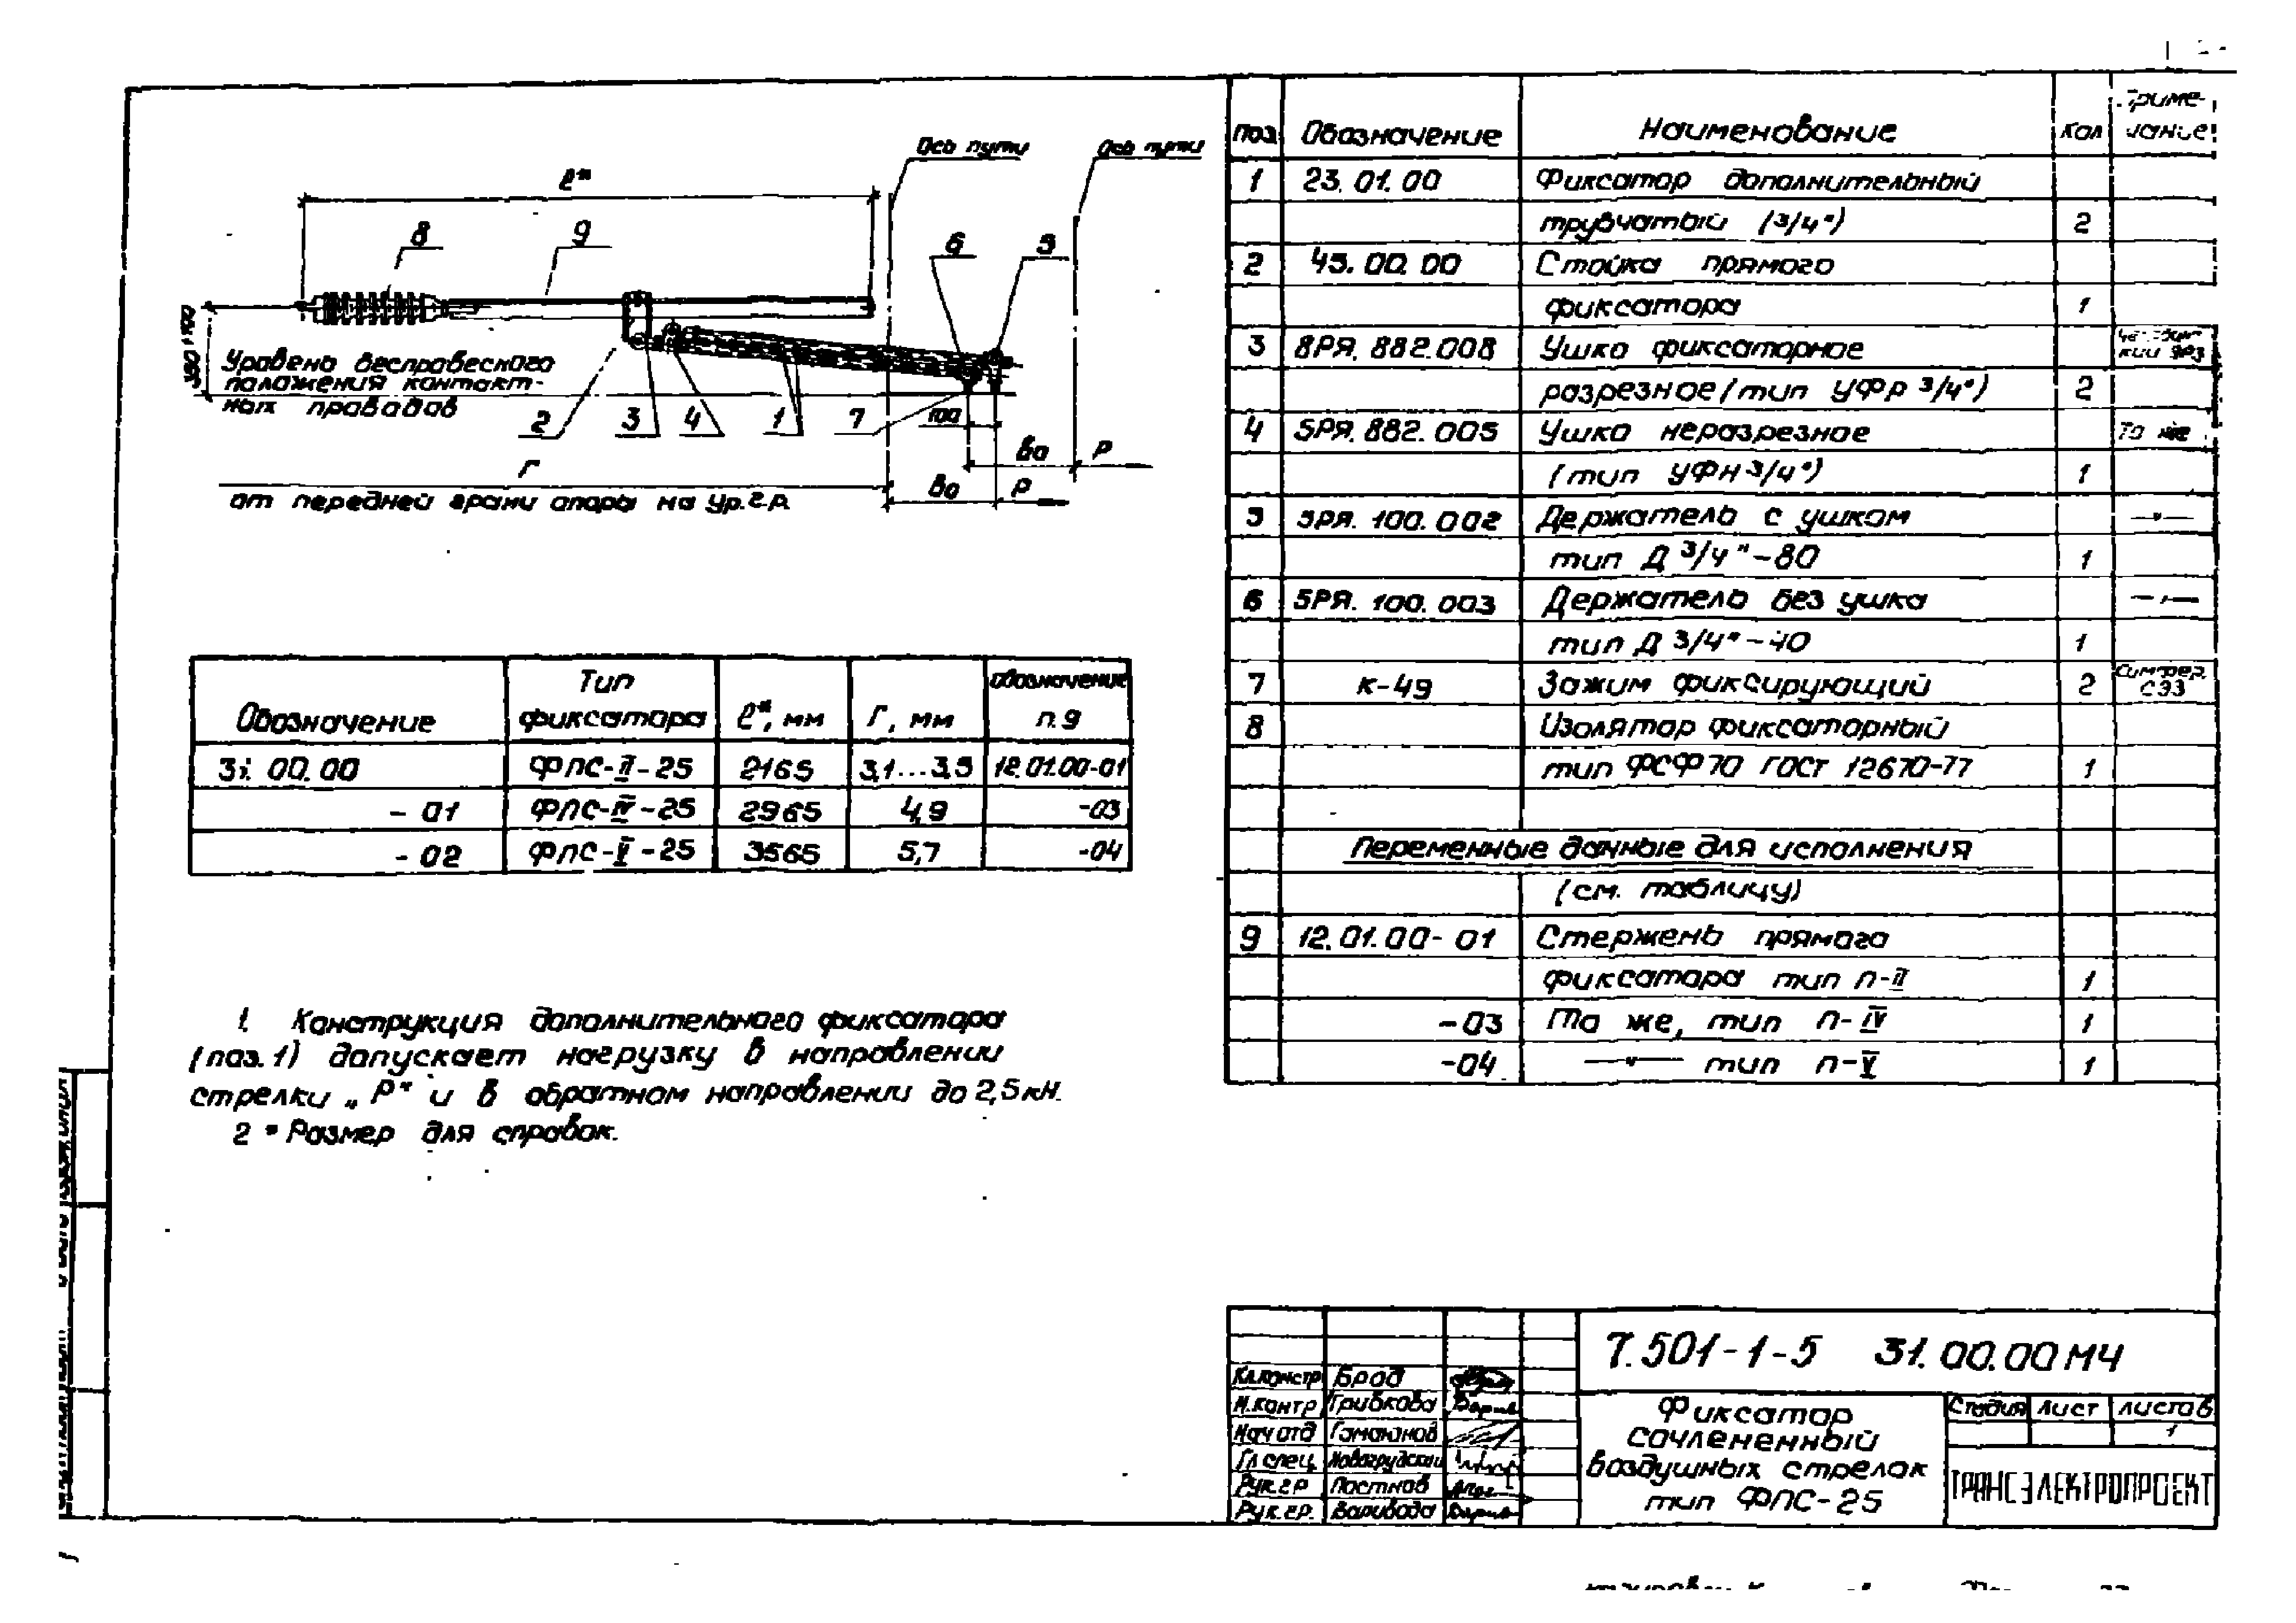 Ось пути
Ось пути
ℓ*
8
9
6
5
Уровень беспровесного
положения контакт-
ных проводов
2
3
4
1
7
100
Во
Р
Г
Во
Р
от передней грани опоры на Ур.г.р.
Обозначение Тип фиксатора ℓ*, мм Г, мм обозначение п.9
31.00.00 ФПС-II-25 2165 3,1...3,5 12.01.00-01
-01 ФПС-IV-25 2965 4,9 -03
-02 ФПС-V-25 3565 5,7 -04
1. Конструкция дополнительного фиксатора
(поз.1) допускает нагрузку в направлении
стрелки „Р" и в обратном направлении до 2,5 кН.
2 * Размер для справок.
поз Обозначение Наименование Кол Приме-
чание
1 23.01.00 Фиксатор дополнительный
трубчатый (3/4") 2
2 45.00.00 Стойка прямого
фиксатора 1
3 8РЯ.882.008 Ушко фиксаторное
разрезное (тип УФР 3/4") 2
4 5РЯ.882.005 Ушко неразрезное То же
(тип УФН 3/4") 1
5 5РЯ.100.002 Держатель с ушком —"—
тип Д 3/4"-80 1
6 5РЯ.100.003 Держатель без ушка —"—
тип Д 3/4"-40 1
7 К-49 Зажим фиксирующий 2 СЭЗ
8 Изолятор фиксаторный
тип ФСФ70 ГОСТ 12670-77 1
Переменные данные для исполнения
(см. таблицу)
9 12.01.00-01 Стержень прямого
фиксатора тип П-II 1
-03 То же, тип П-IV 1
-04 —"— тип П-V 1
7.501-1-5 31.00.00МЧ
Гл.констр Брод
Н.контр Грибкова
Нач отд Гамаюнов
Гл спец Новогрудский
Рук.гр Постнов
Рук.гр. Варивода
Фиксатор
сочлененный
воздушных стрелок
тип ФПС-25
Стадия Лист Листов
1
ТРАНСЭЛЕКТРОПРОЕКТ